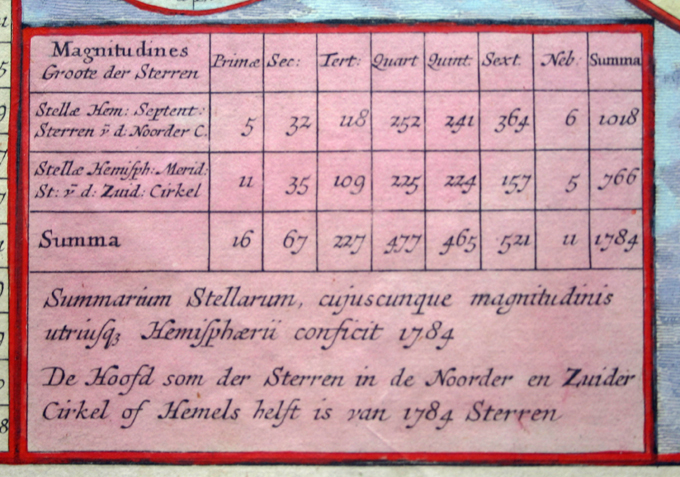 Magnitudines
Groote der Sterren
Primæ Sec: Tert: Quart Quint: Sext. Neb: Summa
Stellæ Hem: Septent:
Sterren ṽ d: Noorder C. 5 32 118 252 241 364 6 1018
Stellæ Hemiſph: Merid:
St: ṽ d: Zuid: Cirkel 11 35 109 225 224 157 5 766
Summa 16 67 227 477 465 521 11 1784
Summarium Stellarum, cujuscunque magnitudinis
utriuſqꝫ Hemiſphærii conficit 1784
De Hoofd som der Sterren in de Noorder en Zuider
Cirkel of Hemels helft is van 1784 Sterren